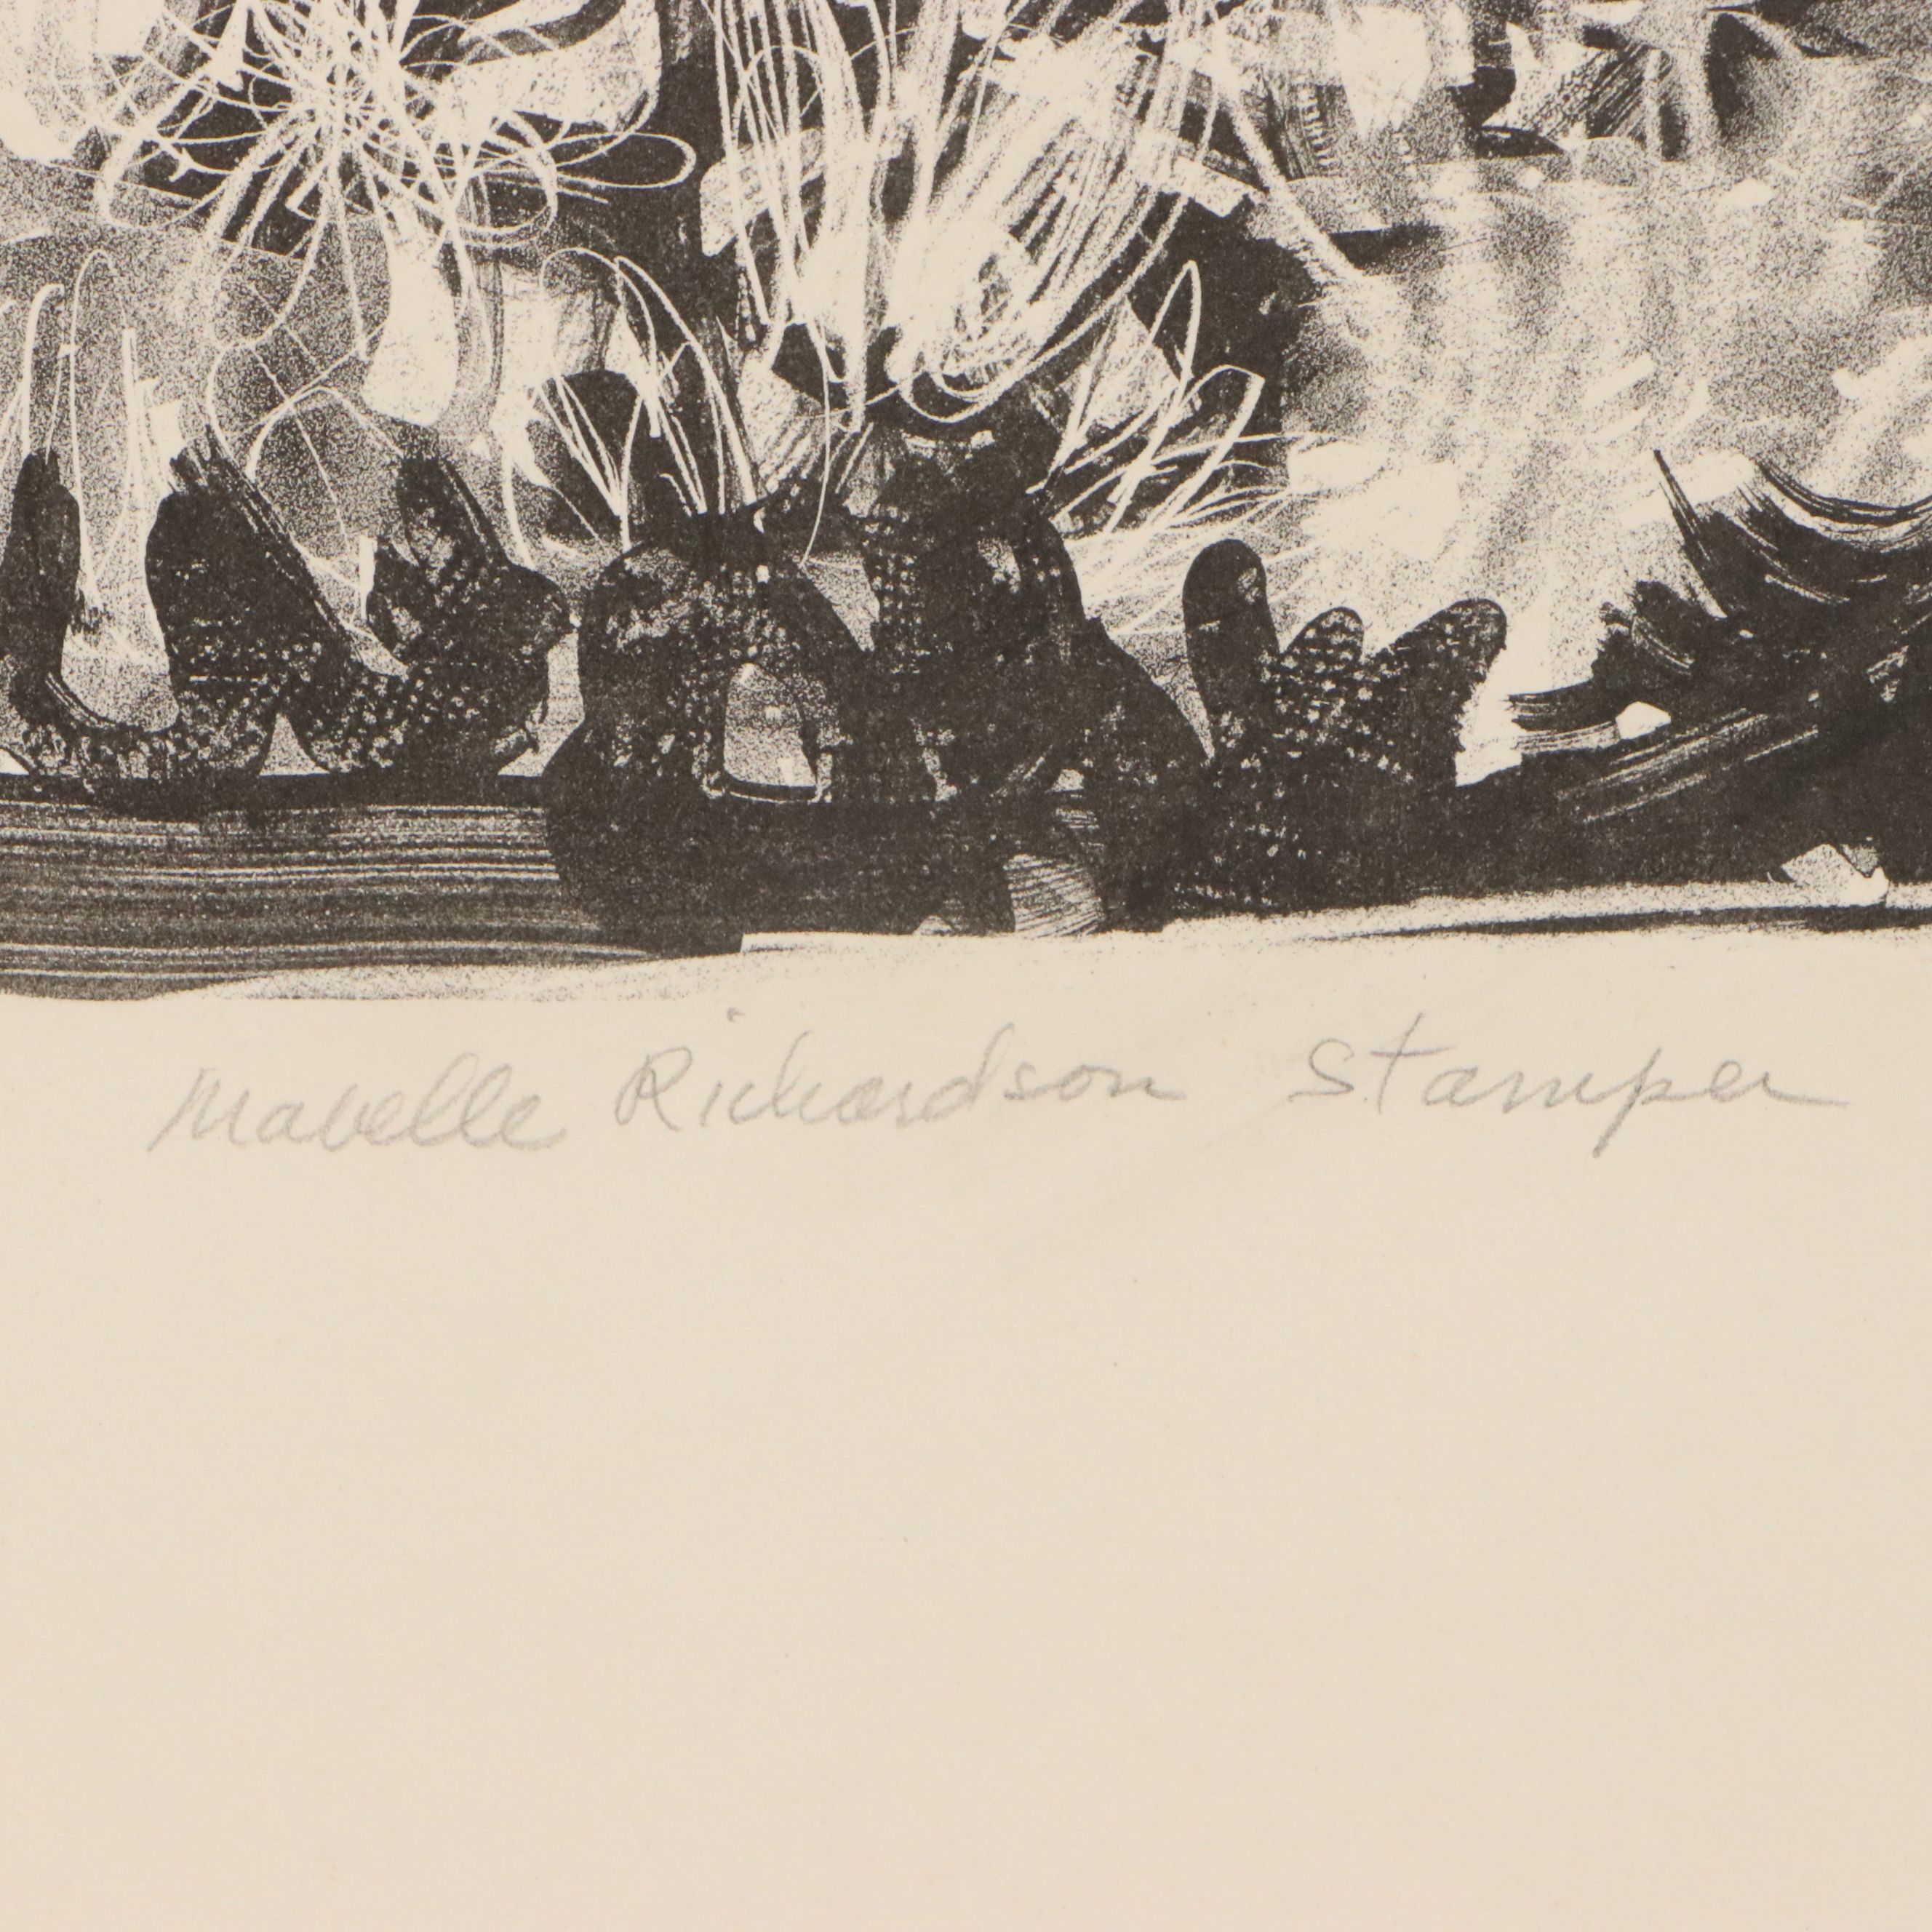 Mabelle Richardson Stamper